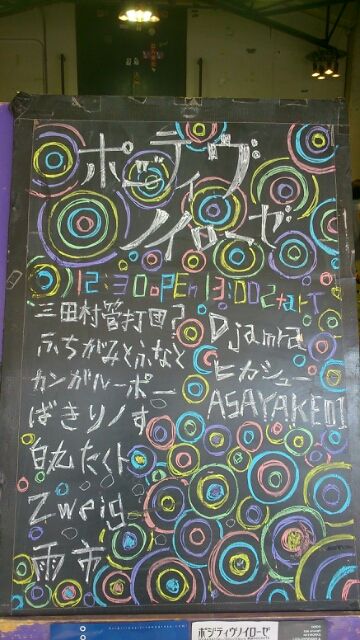 ポジティヴ
ノイローゼ
12:30 OPEN 13:00 START
三田村管打団?
ふちがみとふなと
カンガルーポー
ばきりノす
Zweig
雨市
Djamra
ヒカシュー
ASAYAKE01
ポジティヴノイローゼ